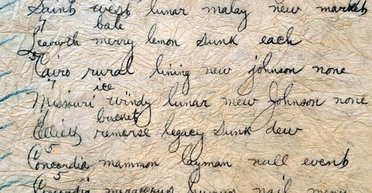 Saints west lunar malay new market
7 bale
Leavorth merry lemon sunk each
5
Cairo rural lining new johnson none
7 ice
Missouri windy lunar mew Johnson none
bucket
Elliott remorse legacy sunk dew
5
Concordia mammon layman null events
5